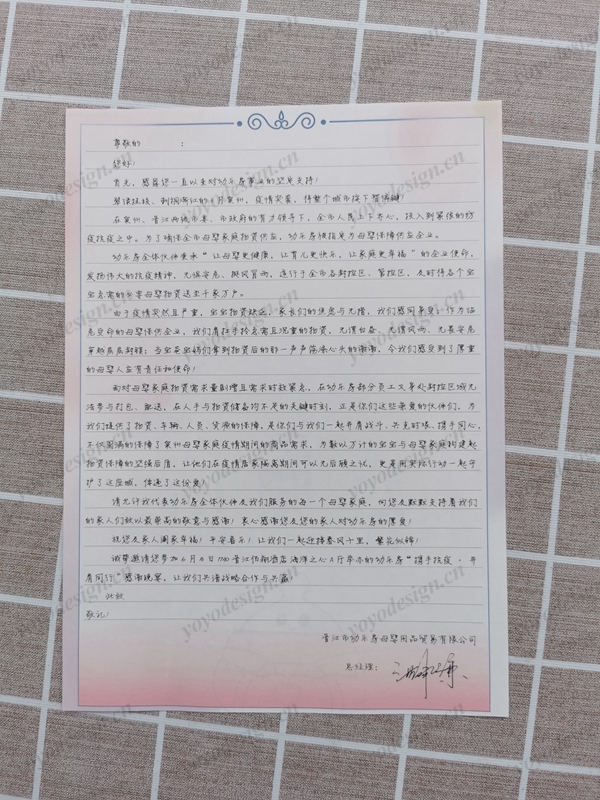 尊敬的          :
您好!
首先,感谢您一直以来对幼乐房事业的坚定支持!
草读抗疫、到桐浙江的4月泉州,疫情突袭,得整个城市按下暂停键!
在泉州、晋江两级市委、市政府的有力领导下,全市人民上下齐心,投入到紧张的防
疫抗疫之中。为了确保全市母婴家庭物资供应,幼乐房被指定为母婴保障供应企业。
幼乐房全体伙伴秉承“让母婴更健康,让育儿更快乐,让家庭更幸福”的企业使命,
发扬伟大的抗疫精神,无惧安危,挺风冒雨,逆行于全市各封控区、管控区,及时将各个宝
宝急需的乡零母婴物资送至千家万户。
由于疫情突然且严重,宝宝物资缺乏,家长们的焦急与无措,我们感同身受!作为临
危受命的母婴保供企业,我们肩扛手拎急需且沉重的物资,无谓白昼、无谓风雨、无畏安危
穿越底底封锁;当宝爸宝妈们拿到物资后的那一声声荡漾心头的谢谢,令我们感受到了厚重
的母婴人应有责任和使命!
面对母婴家庭物资需求量剧增且需求时效紧急,在幼乐房部分员工又身处封控区域无
法参与打包、配送,在人手与物资储备均不足的关键时刻,正是你们这些亲爱的伙伴们,为
我们提供了物资、车辆、人员、货源的保障,是你们与我们一起并肩战斗、共克时艰、携手同心,
不仅圆满的保障了泉州母婴家庭疫情期间的商品需求,为数以万计的宝宝与母婴家庭构建起
物资保障的坚强后盾,让他们在疫情居家隔离期间可以无后顾之忧,更是用实际行动一起守
护了这座城,传递了这份爱!
请允许我代表幼乐房全体伙伴及我们服务的每一个母婴家庭,向您及默默支持着我们
的家人们致以最崇高的敬意与感谢!衷心感谢您及您的家人对幼乐房的厚爱!
祝您及家人阖家幸福!平安喜乐!让我们一起迎接春风十里,繁花似锦!
诚挚邀请您参加6月8日17:00晋江佰翔酒店海洋之心A厅举办的幼乐房“携手抗疫·并
肩同行”感谢晚宴,让我们共谱战略合作与共赢!
此致
敬礼!
晋江市幼乐房母婴用品贸易有限公司
总经理:
yoyodesign.cn